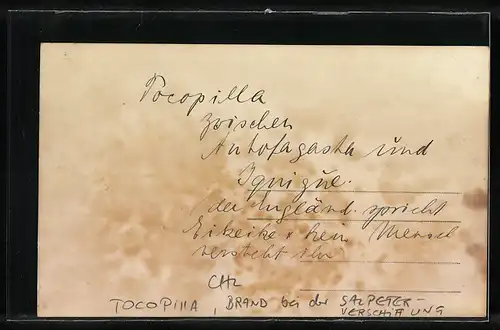 Tocopilla
zwischen
Antofagasta und
Iquique.
der Engländ. spricht
Eikeike & kein Mensch
versteht ihn
CHL
TOCOPIllA, BRAND bei der SALPETER-
VERSCHIFFUNG